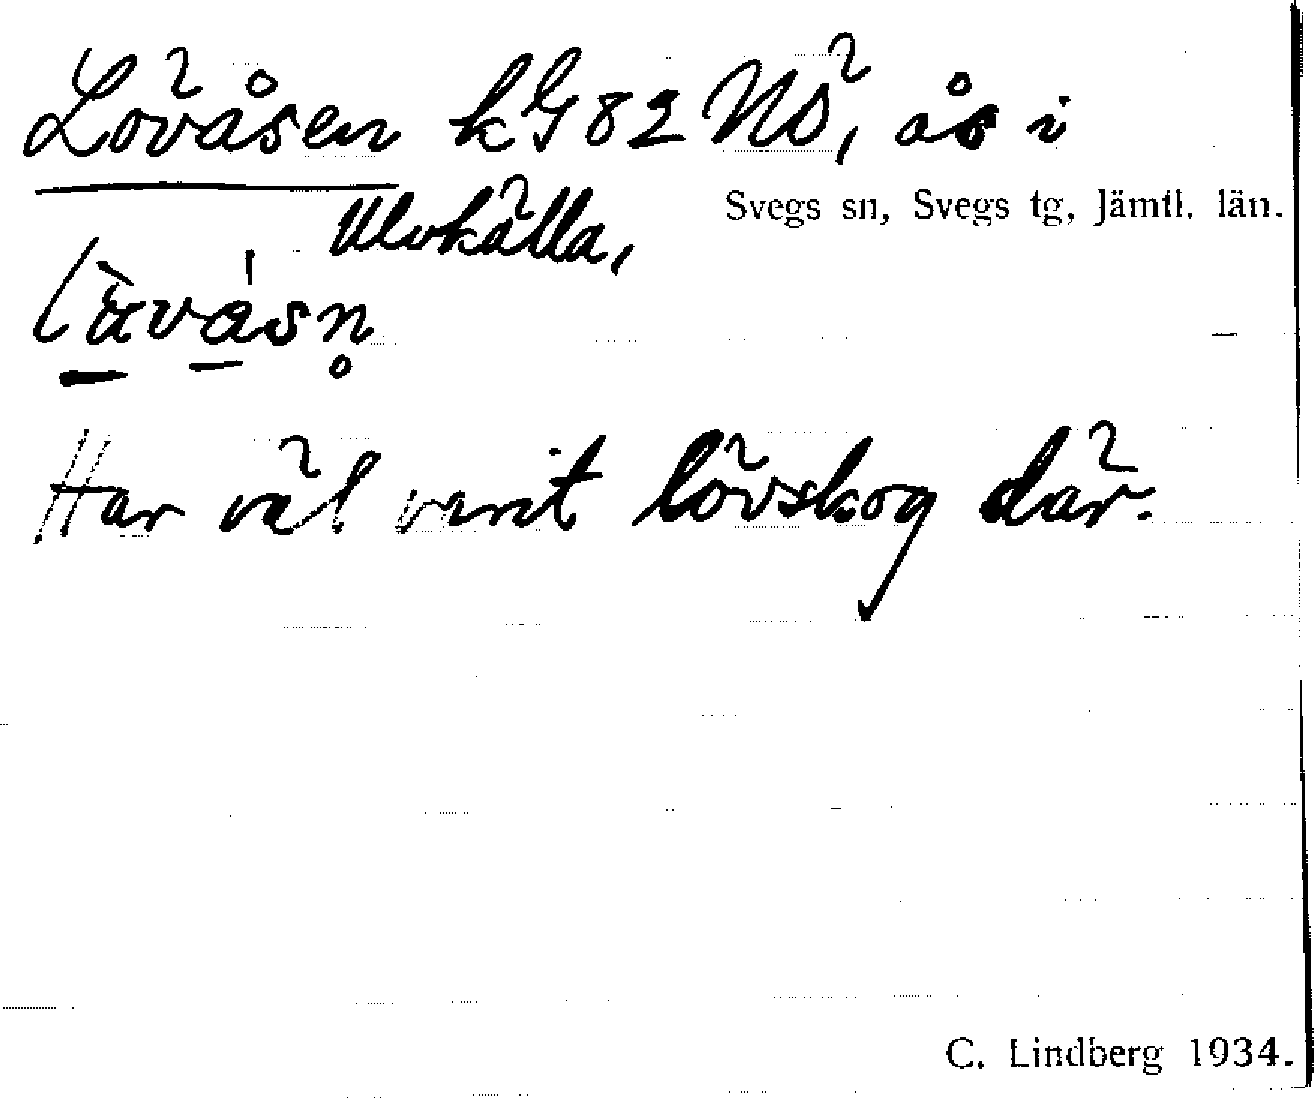 Lövåsen kG 82 NÖ, ås i
Ulvkälla,
Svegs sn, Svegs tg, Jämtl. län.
Har väl varit lövskog där.
C. Lindberg 1934.